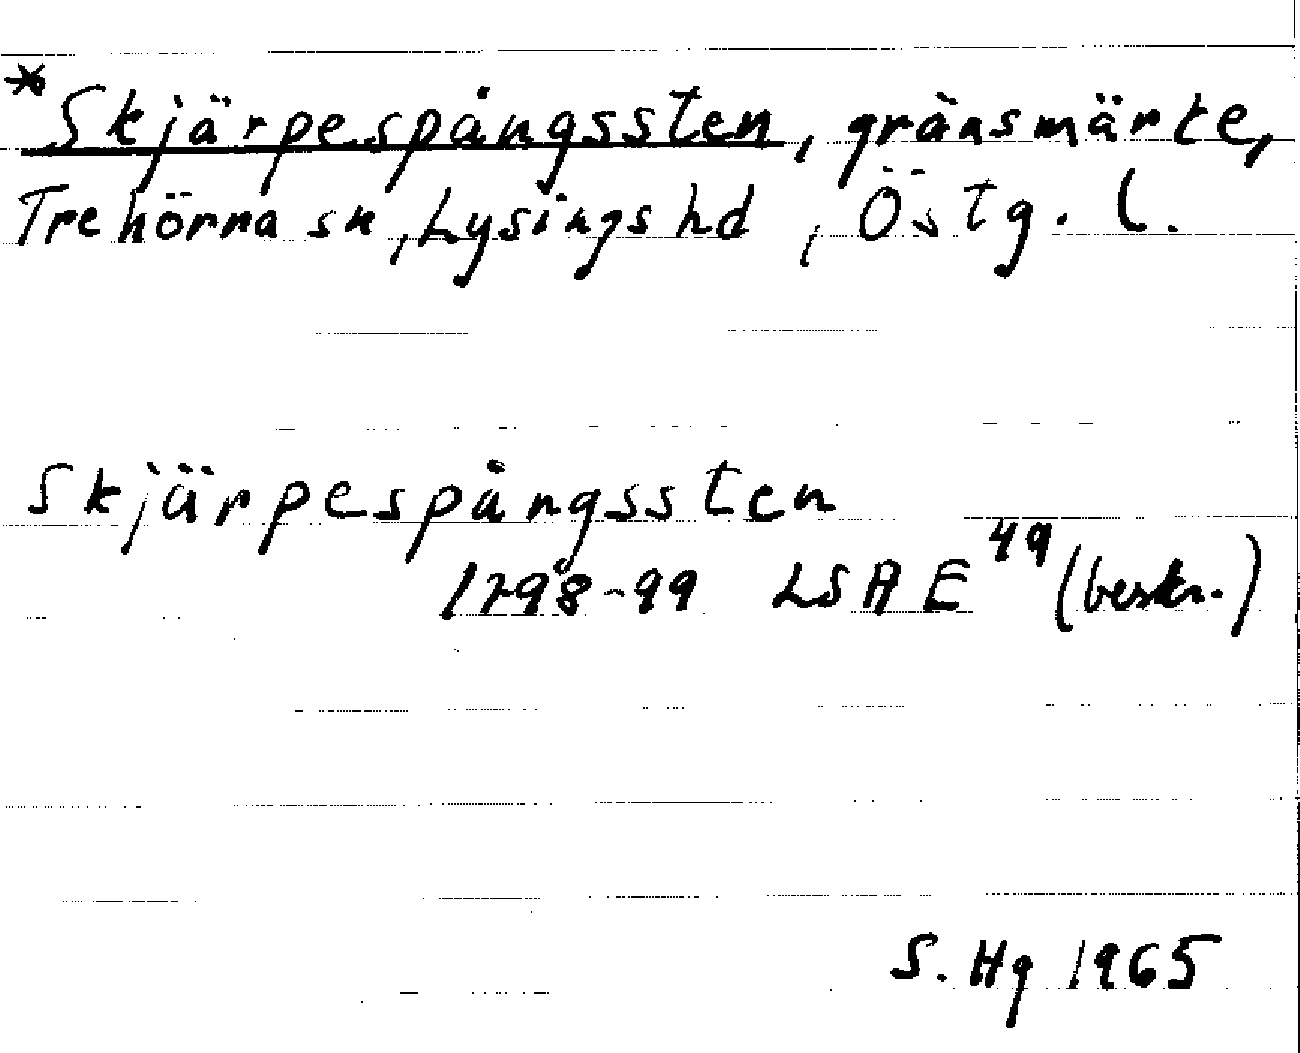 *Skjärpespångssten, gränsmärke,
Trehörna sn, Lysings hd, Östg. l.
Skjärpespångssten
1798-99 LSA E49 (beskr.)
S. Hg 1965